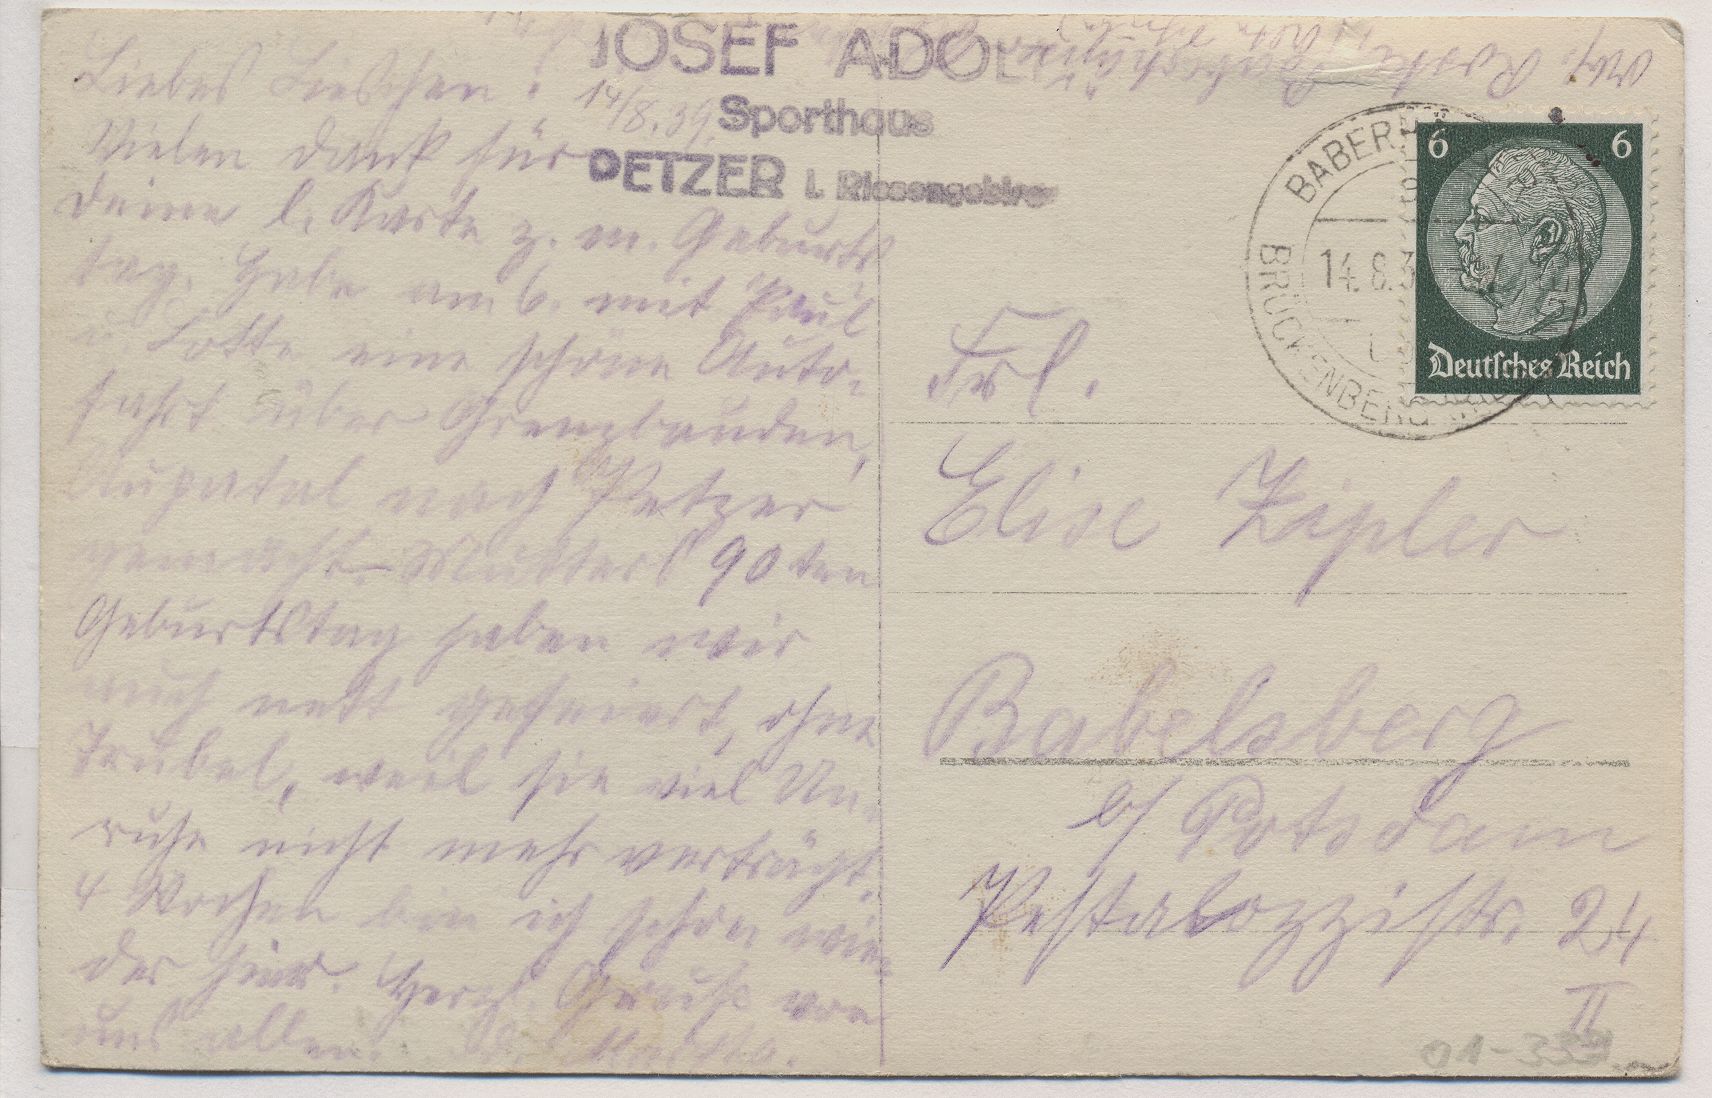 JOSEF ADOL
Sporthaus
PETZER i. Riesengebirge
Liebes Lieschen! 14/8.39.
Vielen Dank für
Deine l. Karte z. m. Geburts
tag. Habe am 6. mit Paul
u. Lotte eine schöne Auto-
fahrt über Grenzbauden,
Aupatal nach Petzer
gemacht. Mutters 90ten
Geburtstag haben wir
auch nett gefeiert, ohne
Trubel, weil sie viel Un-
ruhe nicht mehr verträgt.
4 Wochen bin ich schon wie-
der hier. Herzl. Grüße von
uns allen. D. Martha.
BABERH
14.8.3
BRÜCKENBERG
6 6
Deutsches Reich
Frl.
Elise Zipler
Babelsberg
b/ Potsdam
Pestalozzistr. 24
II
01-339